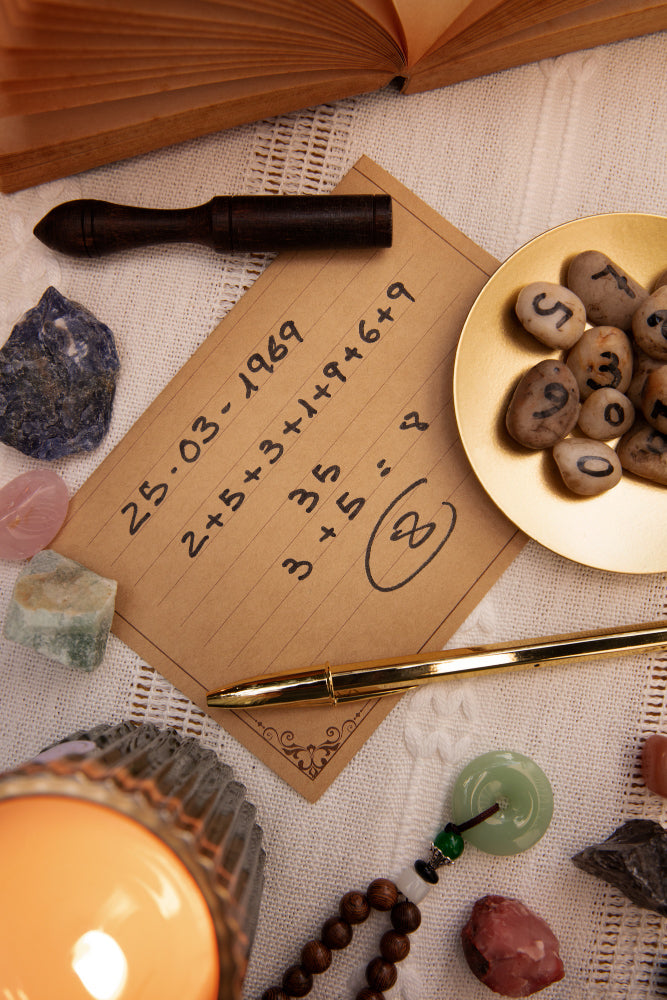 25-03-1969
2+5+3+1+9+6+9
35
3+5=8
8
7
5
3
9
0
0